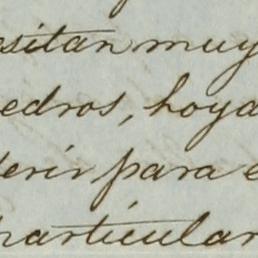 esitan muy
edros, hoya
ferir para e
particular